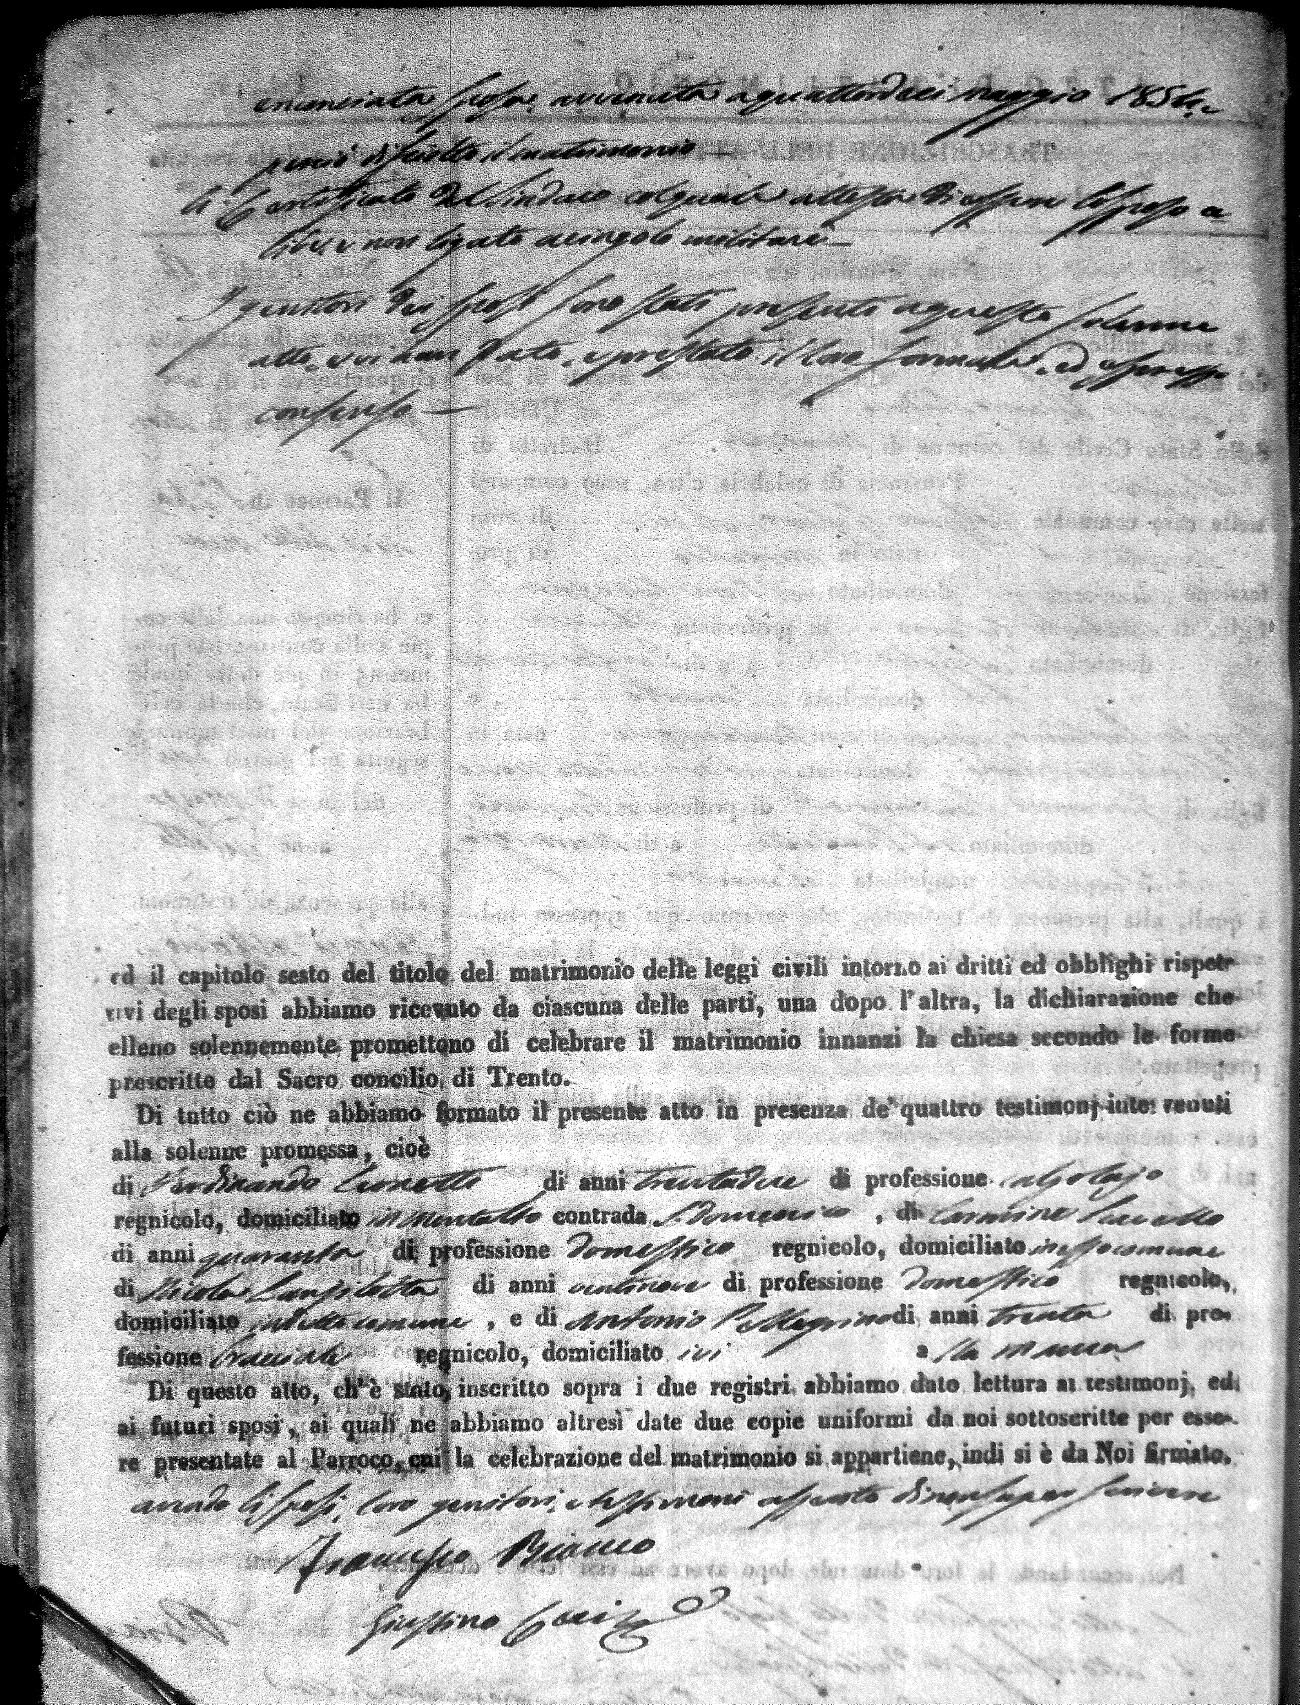 enunciata sposa, avvenuta a quattordici Maggio 1854,
perciò disciolto il matrimonio —
Certificato del Sindaco col quale attesta di essere lo sposo
libero e non legato a cingolo militare —
I genitori dei sposi sono stati presenti a questo solenne
atto, vi han dato, e prestato il loro formale, ed espresso
consenso —
ed il capitolo sesto del titolo del matrimonio delle leggi civili intorno ai dritti ed obblighi rispet-
tivi degli sposi abbiamo ricevuto da ciascuna delle parti, una dopo l'altra, la dichiarazione che
elleno solennemente promettono di celebrare il matrimonio innanzi la chiesa secondo le forme
prescritte dal Sacro concilio di Trento.
Di tutto ciò ne abbiamo formato il presente atto in presenza de' quattro testimonj intervenuti
alla solenne promessa, cioè
di Ferdinando di anni trentadue di professione calzolajo
regnicolo, domiciliato in Montalto contrada S. Domenico , di Carmine
di anni quaranta di professione domestico regnicolo, domiciliato in esso comune
di Nicola di anni ventinove di professione domestico regnicolo,
domiciliato in detto comune , e di Antonio Pellegrino di anni trenta di pro-
fessione bracciale regnicolo, domiciliato ivi
Di questo atto, ch'è stato inscritto sopra i due registri abbiamo dato lettura ai testimonj, ed
ai futuri sposi, ai quali ne abbiamo altresì date due copie uniformi da noi sottoscritte per esse-
re presentate al Parroco, cui la celebrazione del matrimonio si appartiene, indi si è da Noi firmato,
avendo li sposi, loro genitori, e testimoni asserito di non saper scrivere
Francesco Bianco
Giustino